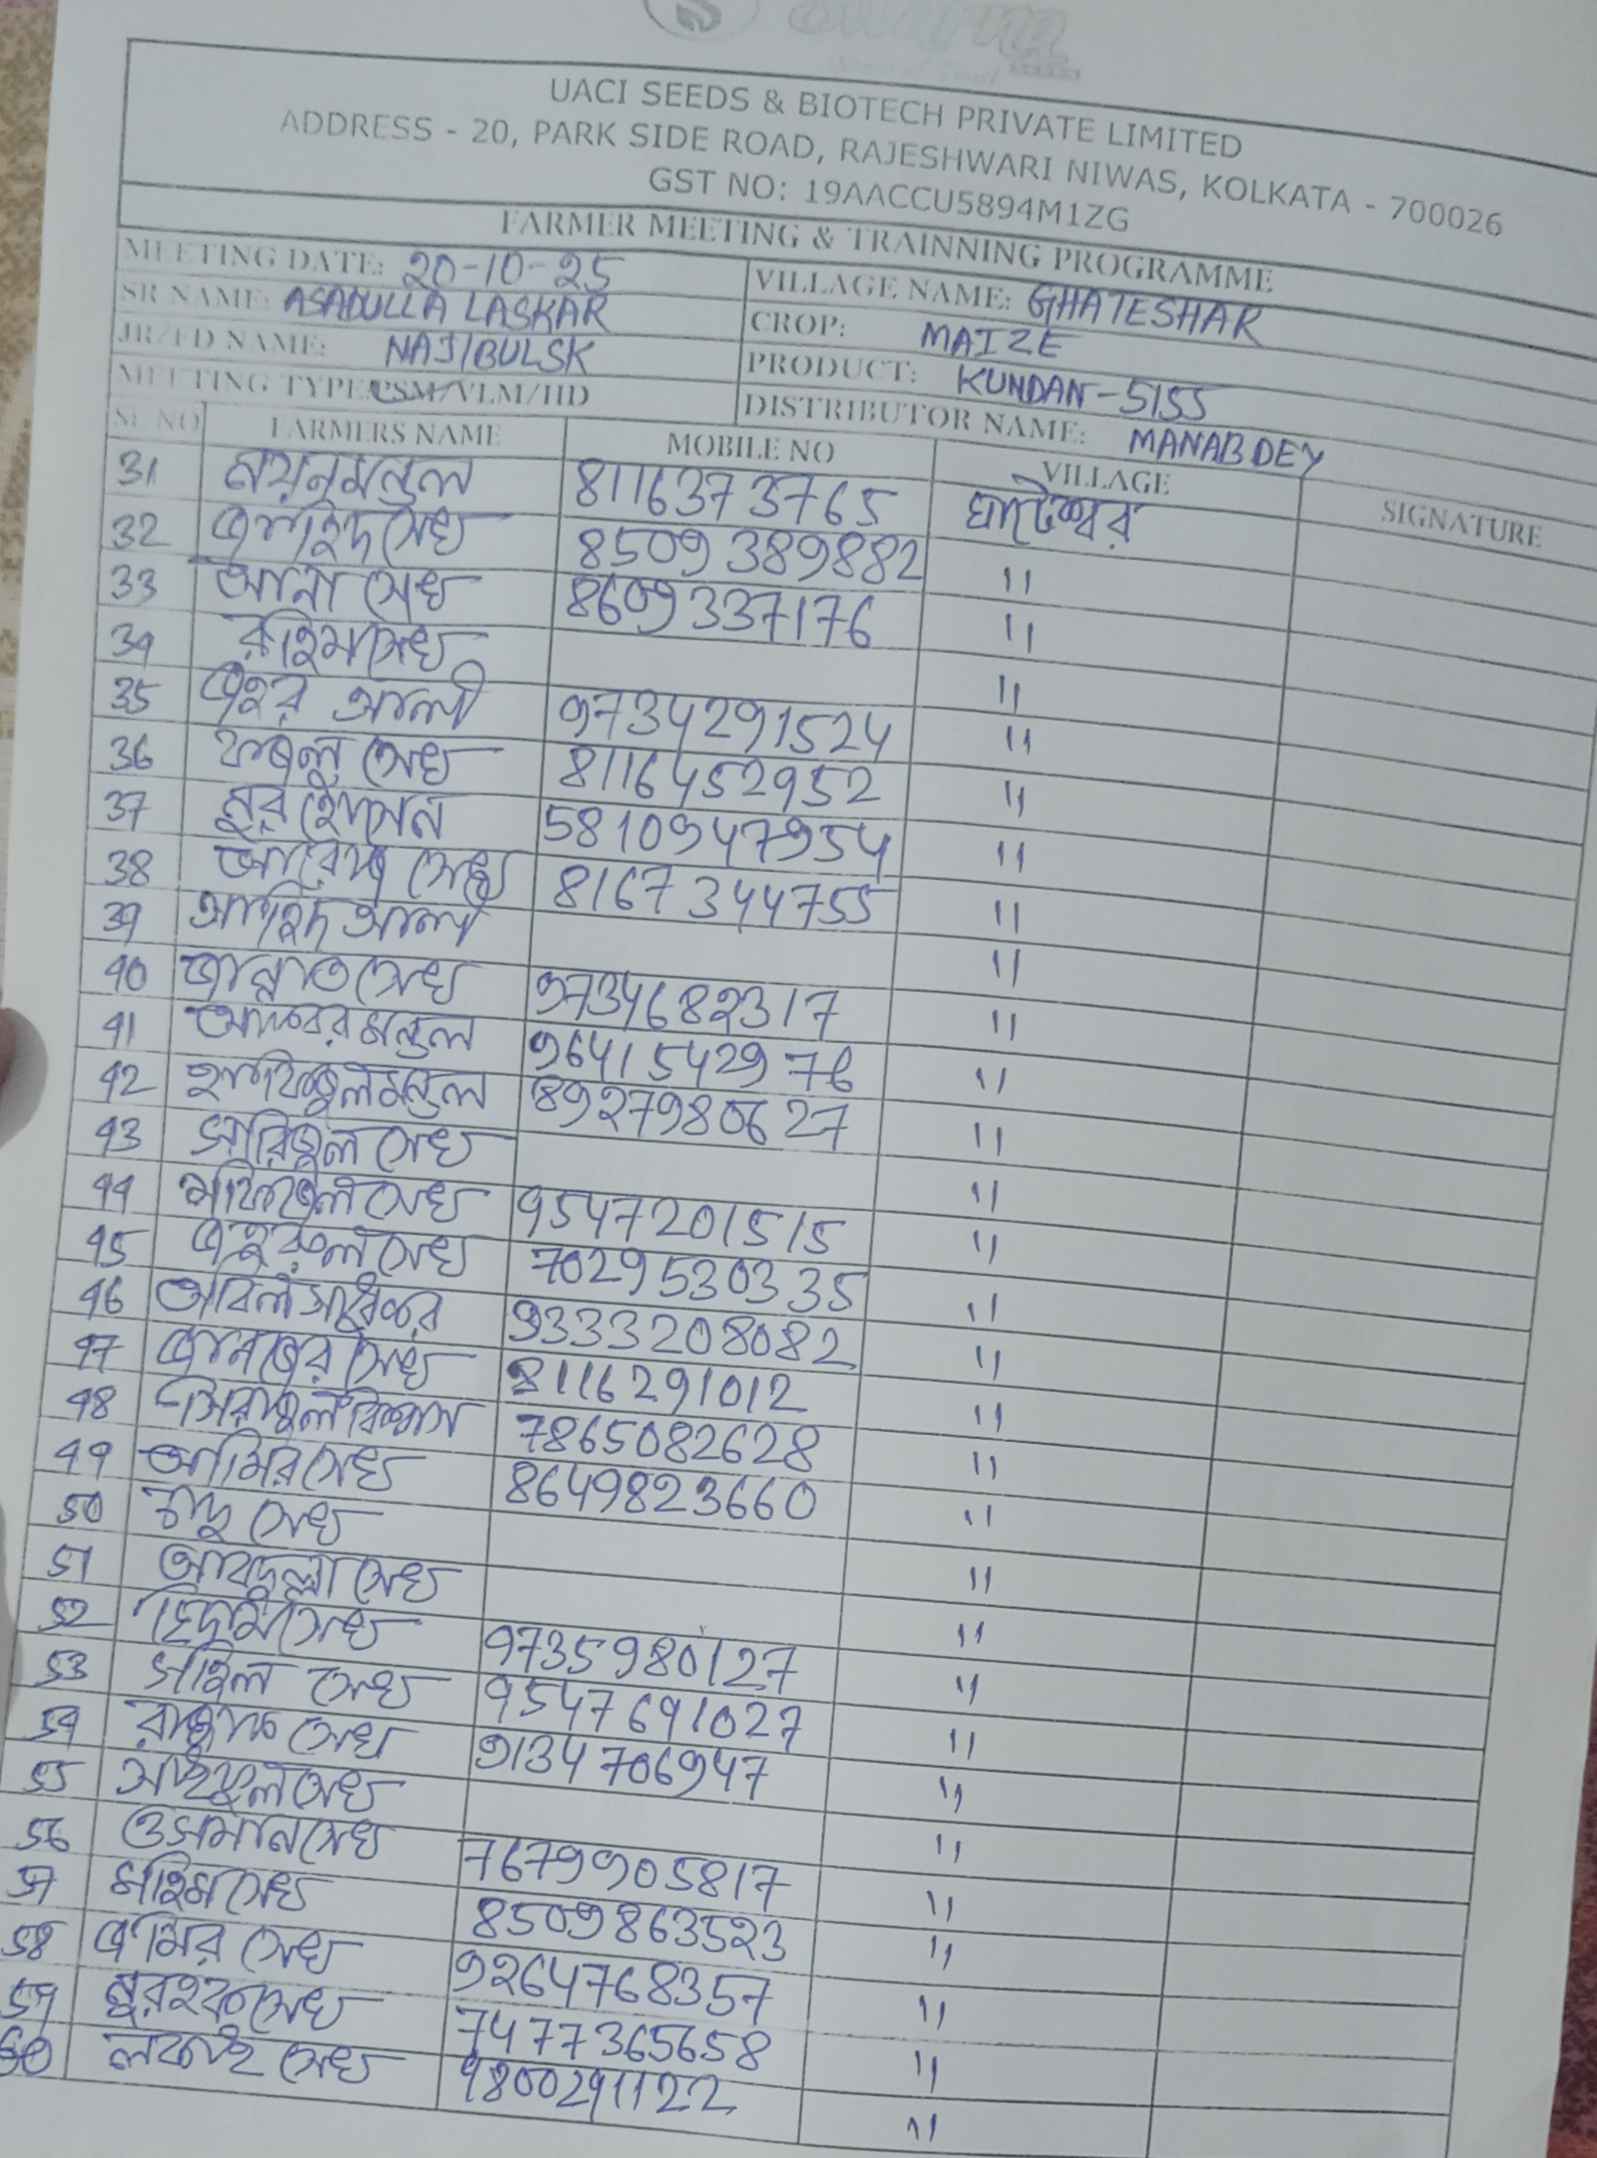 UACI SEEDS & BIOTECH PRIVATE LIMITED
ADDRESS - 20, PARK SIDE ROAD, RAJESHWARI NIWAS, KOLKATA - 700026
GST NO: 19AACCU5894M1ZG
FARMER MEETING & TRAINNING PROGRAMME
MEETING DATE: 20-10-25 VILLAGE NAME: GHATESHAR
SR NAME: ASADULLA LASKAR CROP: MAIZE
JR/FD NAME: NAJIBULSK PRODUCT: KUNDAN-5155
MEETING TYPE: PSM/VLM/HD DISTRIBUTOR NAME: MANAB DEY
SL NO FARMERS NAME MOBILE NO VILLAGE SIGNATURE
31 ময়নুমন্ডল 8116373765 ঘাটেশ্বর
32 সেখ 8509389882 "
33 আনা সেখ 8609337176 "
34 রহিম সেখ "
35 জহর আলী 9734291524 "
36 ফজলু সেখ 8116452952 "
37 নুর হোসেন 5810947954 "
38 সেখ 8167344755 "
39 আলী "
40 জান্নাত সেখ 9734682317 "
41 আকবর মন্ডল 9641542976 "
42 হাফিজুল মন্ডল 8927980627 "
43 সারিজুল সেখ "
44 মফিজুল সেখ 9547201515 "
45 জহুরুল সেখ 7029530335 "
46 9333208082 "
47 সেখ 8116291012 "
48 সিরাজুল বিশ্বাস 7865082628 "
49 আমির সেখ 8649823660 "
50 সেখ "
51 আবদুল্লা সেখ "
52 সেখ 9735980127 "
53 সাহিল সেখ 9547691027 "
54 রাজ্জাক সেখ 9134706947 "
55 সাইফুল সেখ "
56 ওসমান সেখ 7679905817 "
57 মহিম সেখ 8509863523 "
58 জমির সেখ 9264768357 "
59 নুরহক সেখ 7477365658 "
60 সেখ 9800291122 "